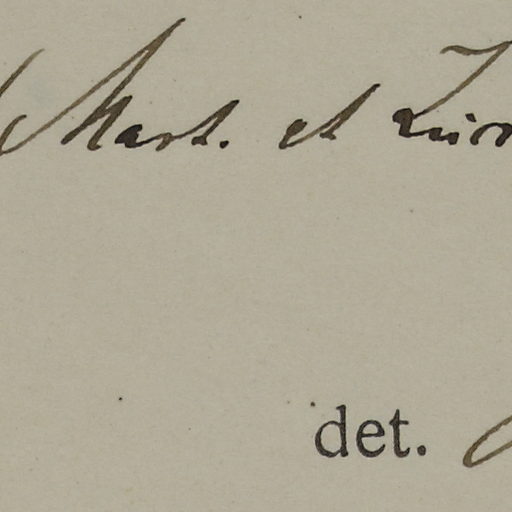 Mart. et Zucc
det.